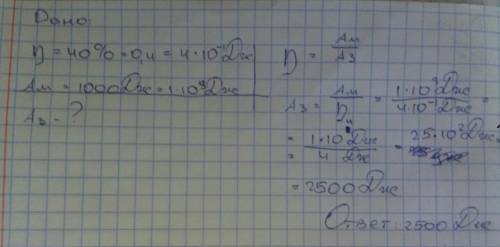 Дано
η = 40% = 0,4 = 4·10⁻¹ Дж
Ам = 1000 Дж = 1·10³ Дж
Аз - ?
η = Ам/Аз
Аз = Ам/η = 1·10³ Дж / 4·10⁻¹ Дж =
= 1·10⁴ Дж / 4 Дж = 25·10² Дж
= 2500 Дж
Ответ: 2500 Дж